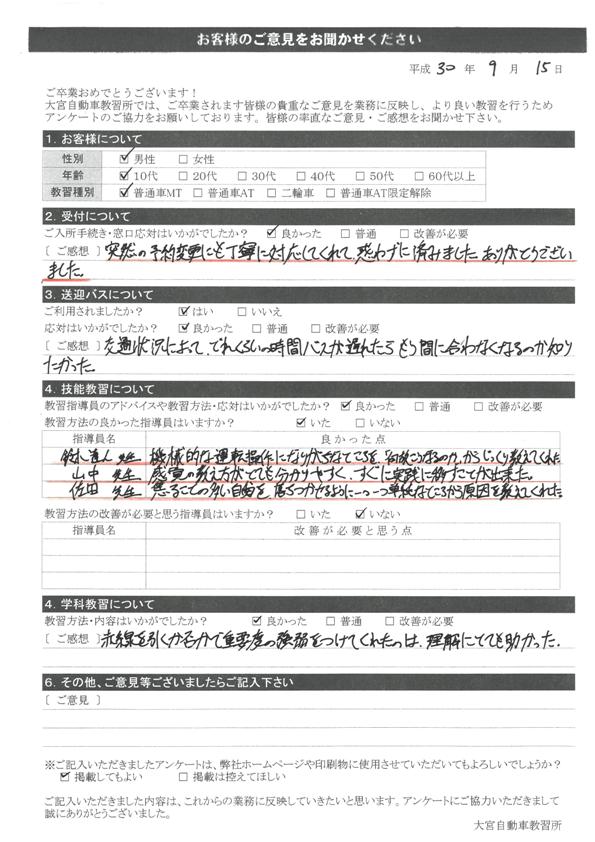 お客様のご意見をお聞かせください
平成 30 年 9 月 15 日
ご卒業おめでとうございます!
大宮自動車教習所では、ご卒業されます皆様の貴重なご意見を業務に反映し、より良い教習を行うため
アンケートのご協力をお願いしております。皆様の率直なご意見・ご感想をお聞かせ下さい。
1. お客様について
性別 ☑ 男性 □ 女性
年齢 ☑ 10代 □ 20代 □ 30代 □ 40代 □ 50代 □ 60代以上
教習種別 ☑ 普通車MT □ 普通車AT □ 二輪車 □ 普通車AT限定解除
2. 受付について
ご入所手続き・窓口応対はいかがでしたか? ☑ 良かった □ 普通 □ 改善が必要
[ ご感想 ] 突然の予約変更にも丁寧に対応してくれて、惑わずに済みました。ありがとうござい
ました。
3. 送迎バスについて
ご利用されましたか? ☑ はい □ いいえ
応対はいかがでしたか? ☑ 良かった □ 普通 □ 改善が必要
[ ご感想 ] 交通状況によって、どれくらいの時間バスが遅れたらもう間に合わなくなるのか知り
たかった。
4. 技能教習について
教習指導員のアドバイスや教習方法・応対はいかがでしたか? ☑ 良かった □ 普通 □ 改善が必要
教習方法の良かった指導員はいますか? ☑ いた □ いない
指導員名 良かった点
鈴木 先生 機械的な運転操作になりがちなところを、何故こうなるのか、からじっくり教えてくれた
山中 先生 感覚の教え方がとても分かりやすく、すぐに実践に移すことが出来ました。
佐田 先生 焦ることの多い自分を、落ちつかせるように一つ一つ単純なところから原因を教えてくれた
教習方法の改善が必要と思う指導員はいますか? □ いた ☑ いない
指導員名 改善が必要と思う点
4. 学科教習について
教習方法・内容はいかがでしたか? ☑ 良かった □ 普通 □ 改善が必要
[ ご感想 ] 赤線を引くか否かで重要度の強弱をつけてくれたのは、理解にとても助かった。
6. その他、ご意見等ございましたらご記入下さい
[ ご意見 ]
※ご記入いただきましたアンケートは、弊社ホームページや印刷物に使用させていただいてもよろしいでしょうか?
☑ 掲載してもよい □ 掲載は控えてほしい
ご記入いただきました内容は、これからの業務に反映していきたいと思います。アンケートにご協力いただきまして
誠にありがとうございました。
大宮自動車教習所